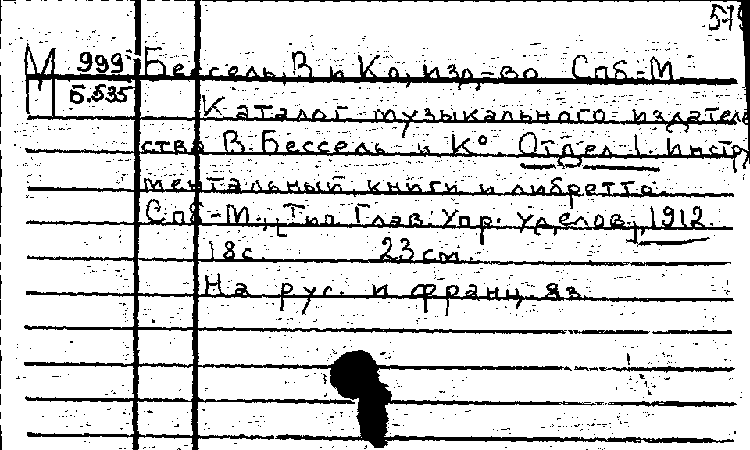 579
М 999 Бессель, В и Ко, изд-во Спб-М.
Б.535
Каталог музыкального издатель
ства В. Бессель и К°. Отдел 1. Инстру
ментальный, книги и либретто.
Спб-М., [Тип. Глав. Упр. Уделов], 1912.
18 с. 23 см.
На рус. и франц. яз.